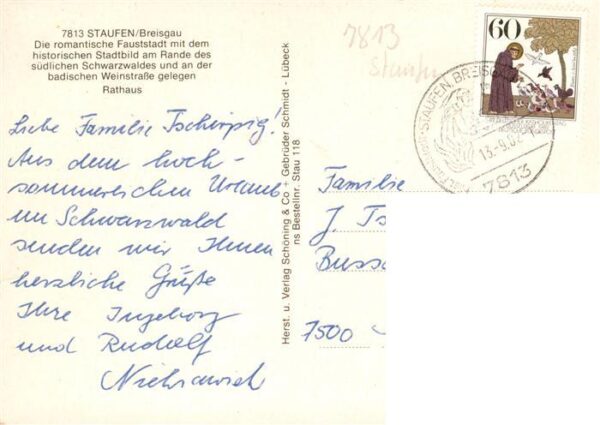 7813 STAUFEN/Breisgau
Die romantische Fauststadt mit dem
historischen Stadtbild am Rande des
südlichen Schwarzwaldes und an der
badischen Weinstraße gelegen
Rathaus
Liebe Familie Tschirpig!
Aus dem hoch-
sommerlichen Urlaub
im Schwarzwald
senden wir Ihnen
herzliche Grüße
Ihre Ingeborg
und Rudolf
Herst. u. Verlag Schöning & Co + Gebrüder Schmidt - Lübeck
ns Bestellnr. Stau 118
7813
Staufen
60
STAUFEN, BREISG
13.-9.82
7813
Familie
J. Ts
Buss
7500